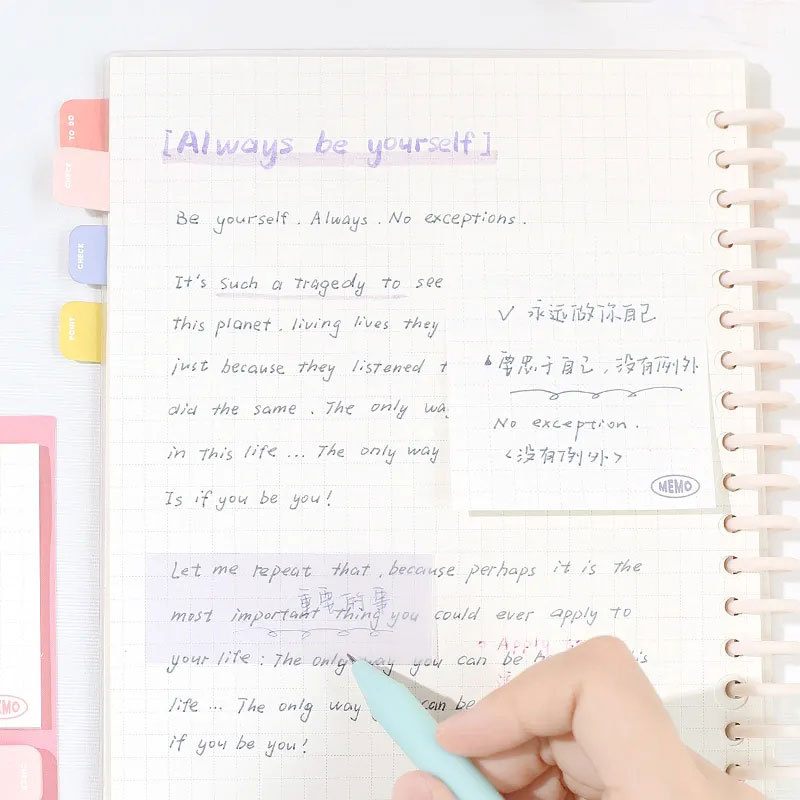 [Always be yourself]
Be yourself. Always. No exceptions.
It's such a tragedy to see
this planet. living lives they
just because they listened
did the same. The only way
in this life ... The only way
Is if you be you!
✓ 永远做你自己
要忠于自己，没有例外
No exception.
<没有例外>
MEMO
Let me repeat that, because perhaps it is the
重要的事
most important thing you could ever apply to
Apply
your life: The only way you can be
life ... The only way can be
if you be you!
TO DO
CHECK
POINT